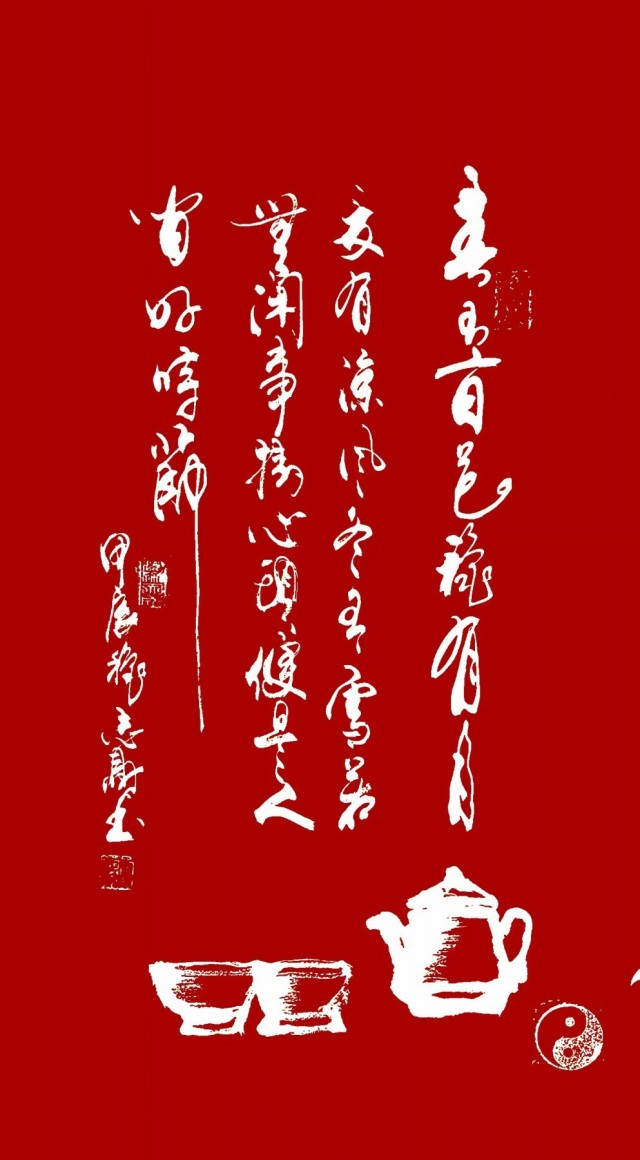 春有百花穐有月
夏有涼風冬有雪若
無閑事掛心頭便是人
間好時節
甲辰穐志